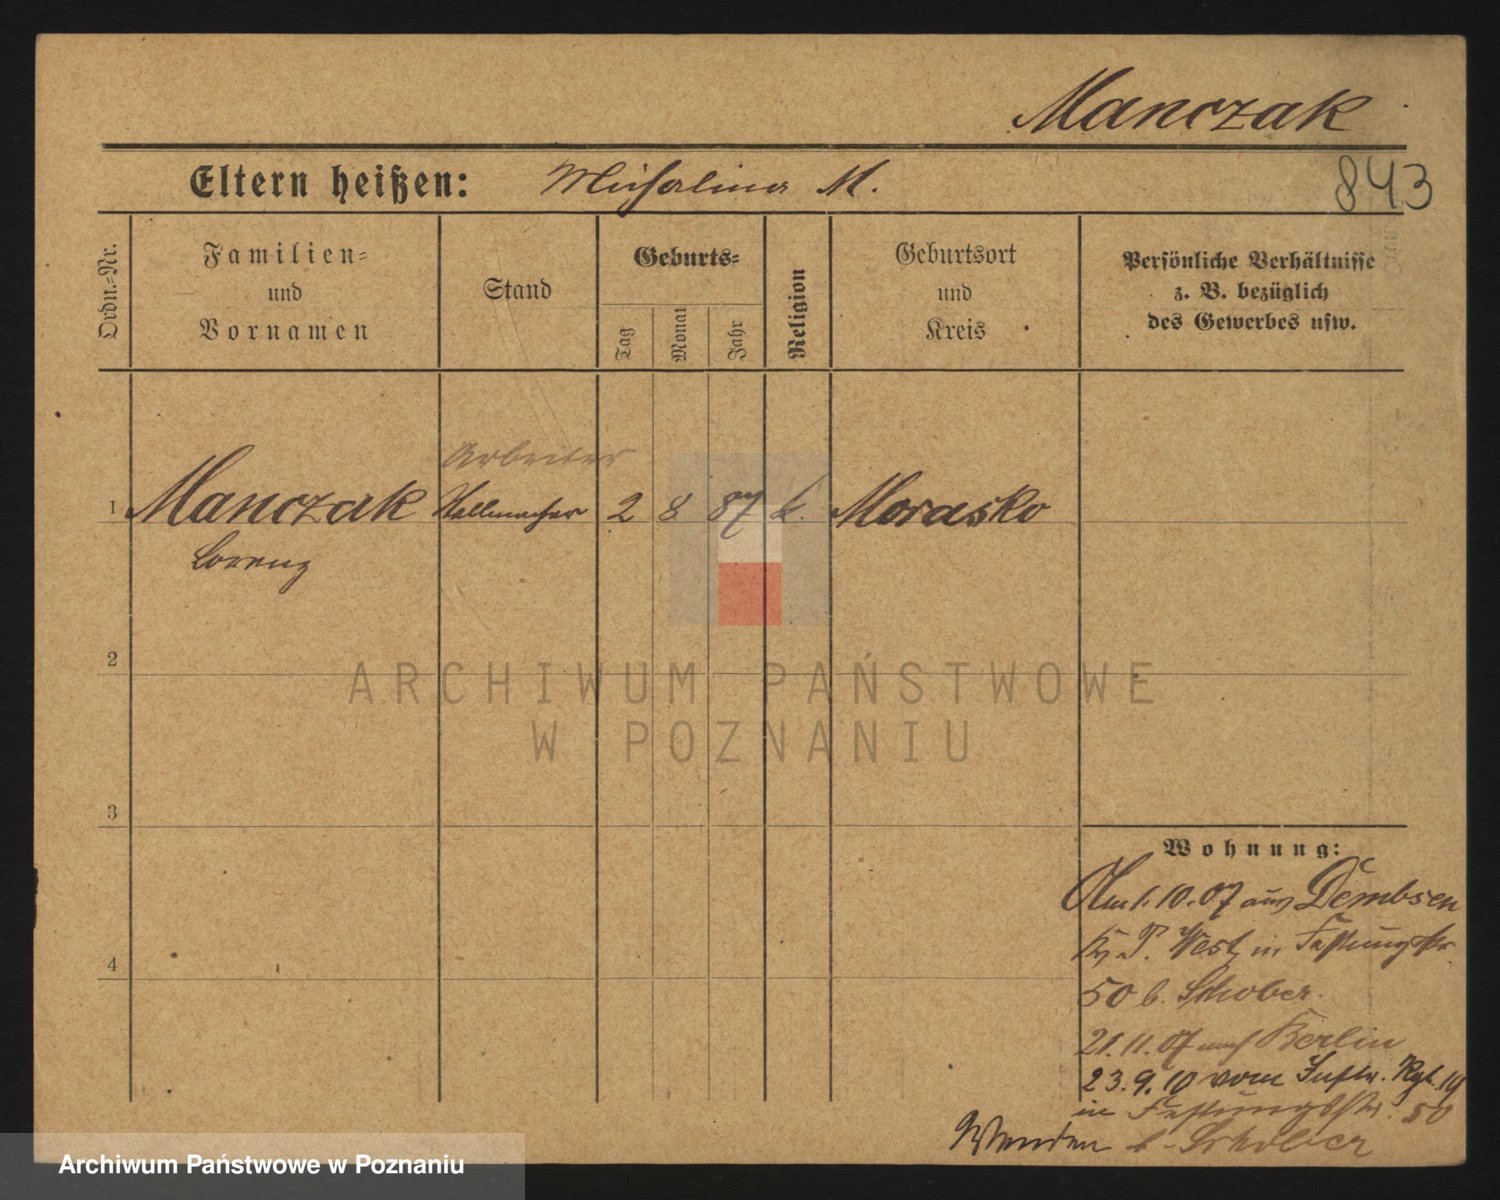 Manczak
843
Eltern heißen: Michalina M.
Ordn.-Nr.
Familien-
und
Vornamen
Stand
Geburts-
Tag
Monat
Jahr
Religion
Geburtsort
und
Kreis
Persönliche Verhältnisse
z. B. bezüglich
des Gewerbes usw.
Arbeiter
1 Manczak Stellmacher 2 8 87 k. Morasko
Lorenz
2
3
4
Wohnung:
Am 1.10.07 aus Dembsen
Kr. P. West, in Festungsstr.
50 b. Schober.
21.11.07 nach Berlin
23.9.10 vom Inftr. Rgt. 19
in Festungsstr. 50
Wenden b. Schober
ARCHIWUM PAŃSTWOWE
W POZNANIU
Archiwum Państwowe w Poznaniu